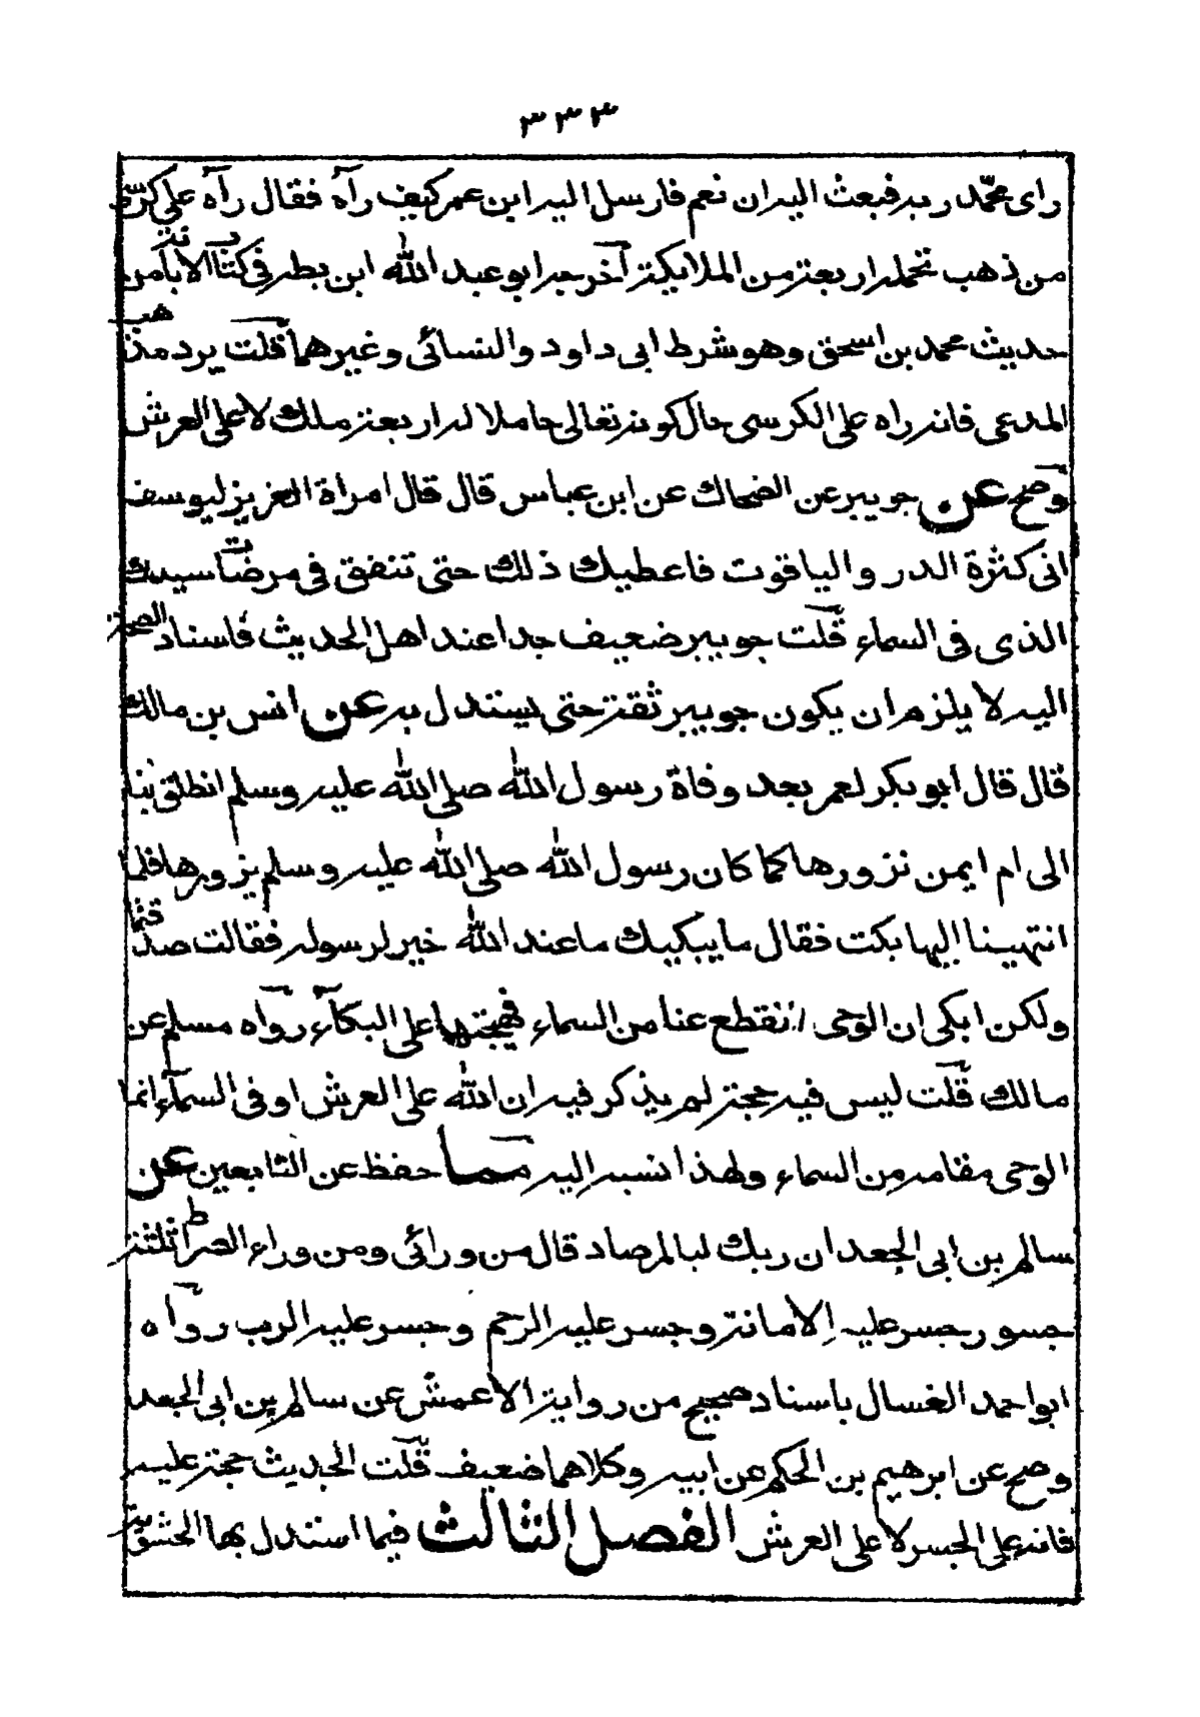 ٣٣٣
رای محمّد ربه فبعث الیه ان نعم فارسل الیه ابن عمر کیف رآه فقال رآه علی کرسی
من ذهب تحمله اربعة من الملایکة آخرجه ابو عبد الله ابن بطه فی کتاب الابانة من
حدیث محمد بن اسحق وهو شرط ابی داود والنسائی وغیرهما قلت یرد مذهب
المدعی فانه راه علی الکرسی حال کونه تعالی حاملا له اربعة ملك لا علی العرش
وصح عن جویبر عن الضحاك عن ابن عباس قال قال امراة العزیز لیوسف
انی کثرة الدر والیاقوت فاعطیك ذلك حتی تنفق فی مرضات سیدك
الذی فی السماء قلت جویبر ضعیف جدا عند اهل الحدیث فاسناد الصحة
الیه لا یلزم ان یکون جویبر ثقة حتی یستدل به عن انس بن مالك
قال قال ابو بکر لعمر بعد وفاة رسول الله صلی الله علیه وسلم انطلق بنا
الی ام ایمن نزورها کما کان رسول الله صلی الله علیه وسلم یزورها فلما
انتهینا الیها بکت فقال ما یبکیك ما عند الله خیر لرسوله فقالت صدقتما
ولکن ابکی ان الوحی انقطع عنا من السماء فهیجتهما علی البکآء رواه مسلم عن
مالك قلت لیس فیه حجة لم یذکر فیه ان الله علی العرش او فی السمآء انما
الوحی مقامه من السماء ولهذا نسبه الیه مما حفظ عن التابعین عن
سالم بن ابی الجعد ان ربك لبالمرصاد قال من ورائی ومن وراء الصراط ثلثة
جسور جسر علیه الامانة وجسر علیه الرحم وجسر علیه الرب رواه
ابو احمد الغسال باسناد صحیح من روایة الاعمش عن سالم بن ابی الجعد
وصح عن ابرهیم بن الحکم عن ابیه وکلاهما ضعیف قلت الحدیث حجة علیه
فانه علی الجسر لا علی العرش الفصل الثالث فیما استدل بها الحشویة